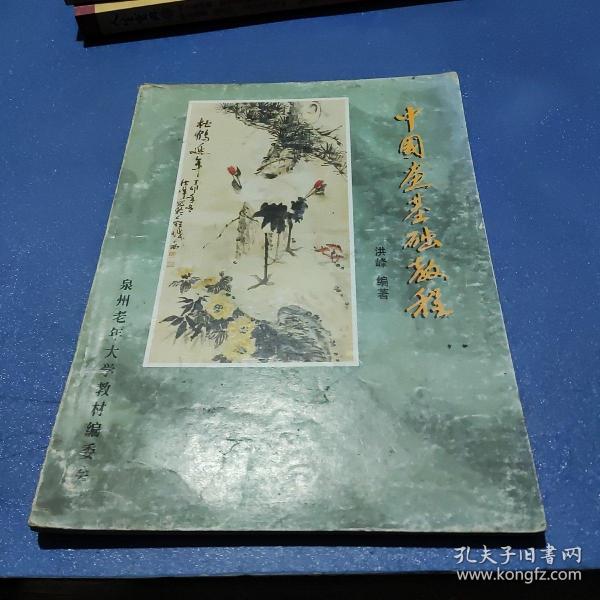 中国画基础教程
洪峰 编著
松鹤延年
泉州老年大学教材编委会
孔夫子旧书网
www.kongfz.com